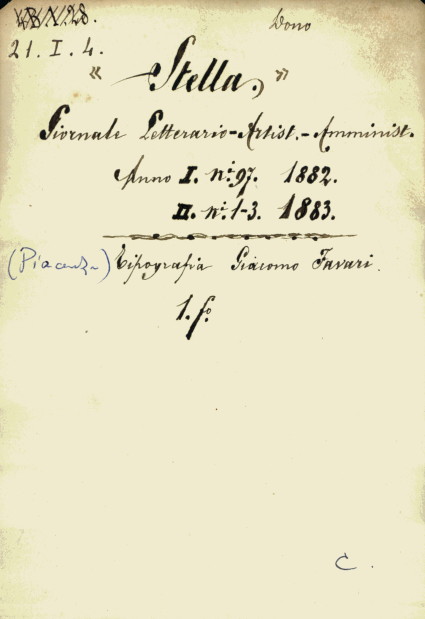 Dono
21. I. 4.
" Stella. "
Giornale Letterario-Artist.-Amminist.
Anno I. n.i 97. 1882.
II. n.i 1-3. 1883.
(Piacenza) Tipografia Giacomo Favari.
1. fo
C.